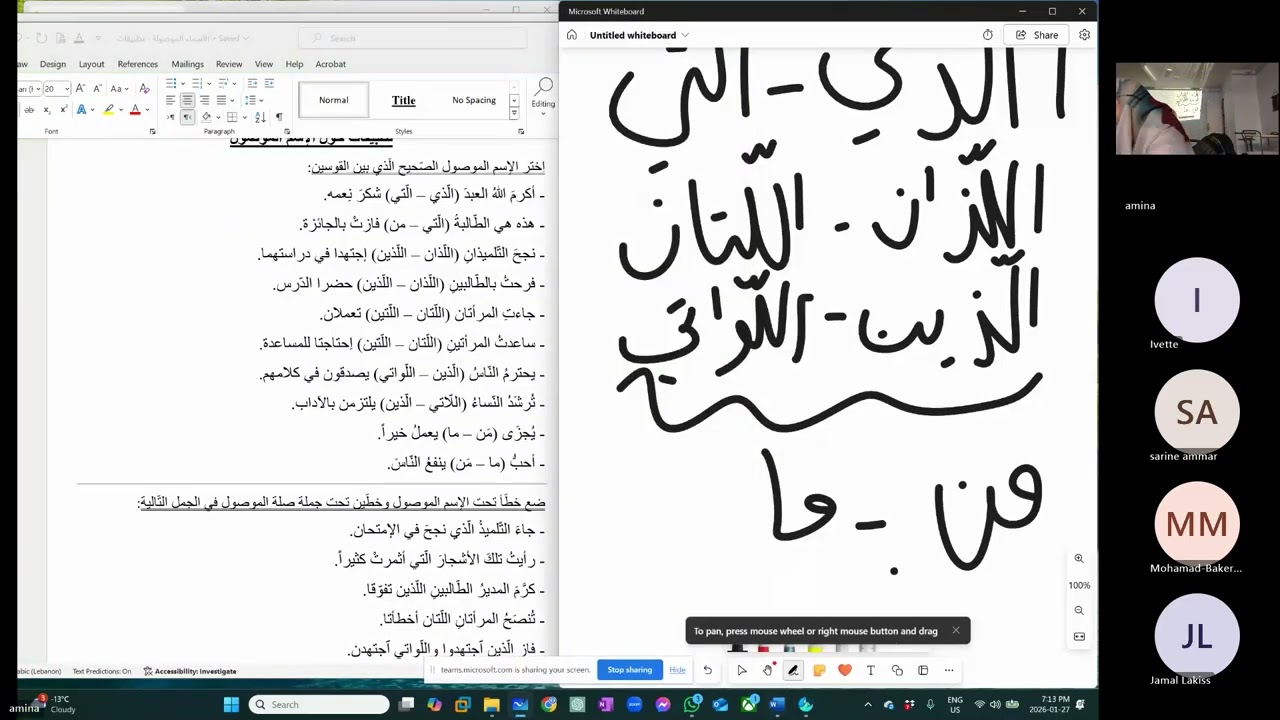 Microsoft Whiteboard
Untitled whiteboard
Share
Saved
Search
Design Layout References Mailings Review View Help Acrobat
20
Normal
Title
No Spacing
Editing
Font
Paragraph
Styles
تطبيقات حول الإسم الموصول
اختر الإسم الموصول الصّحيح الّذي بين القوسين:
- أكرمَ اللهُ العبدَ (الّذي – الّتي) شكرَ نِعمه.
- هذه هي الطّالبةُ (الّتي – من) فازتْ بالجائزة.
- نجحَ التّلميذانِ (اللّذان – اللّذين) إجتهدا في دراستهما.
- فرحتُ بالطّالبينِ (اللّذان – اللّذين) حضرا الدّرس.
- جاءتِ المرأتان (اللّتان – اللّتين) تعملان.
- ساعدتُ المرأتينِ (اللّتان – اللّتين) إحتاجتا للمساعدة.
- يحترمُ النّاسُ (الّذين – اللّواتي) يصدقون في كلامهم.
- تُرشَدُ النّساءُ (اللّاتي – الّذين) يلتزمن بالآداب.
- يُجزَى (مَن – ما) يعملُ خيراً.
- أحبُّ (ما – مَن) ينفعُ النّاسَ.
ضع خطّاً تحت الإسم الموصول وخطّين تحت جملة صلة الموصول في الجمل التّالية:
- جاءَ التّلميذُ الّذي نجحَ في الإمتحان.
- رأيتُ تلكَ الأشجارَ الّتي أثمرتْ كثيراً.
- كرَّمَ المديرُ الطّالبينِ اللّذين تفوّقا.
- تُنصَحُ المرأتانِ اللّتان أخطأتا.
- فازَ الّذين اَجتهدوا واللّواتي اَجتهدن.
الذي - التي
اللّذان - اللّتان
الّذين - اللّواتي
من - ما
100%
To pan, press mouse wheel or right mouse button and drag
(Lebanon) Text Predictions: On Accessibility: Investigate
teams.microsoft.com is sharing your screen.
Stop sharing
Hide
-13°C
Cloudy
Search
ENG
US
7:13 PM
2026-01-27
amina
amina
I
Ivette
SA
sarine ammar
MM
Mohamad-Baker...
JL
Jamal Lakiss